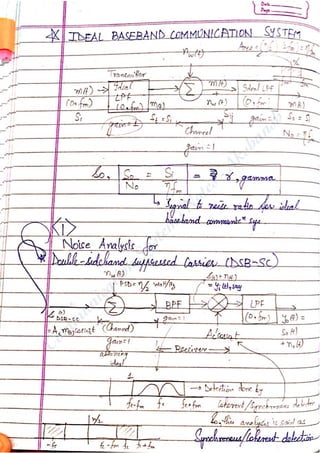 Date
Page
* IDEAL BASEBAND COMMUNICATION SYSTEM
n_w(t)
Transmitter
m(t) → Ideal LPF (0-fm)
m(t)
Σ
m(t)
n_w(t)
Ideal LPF (0-fm)
m(t)
(0-fm)
Si
gain=1
St = Si
Channel
gain=1
So = Si
No = ηfm
So, So/No = Si/ηfm = γ, gamma
↳ Signal to noise ratio for ideal
baseband communicⁿ sys.
<1>
Noise Analysis for
* Double-sideband suppressed Carrier (DSB-SC)
n_w(t)
PSD = η/2 watt/Hz
= y_i(t), say
Σ
BPF
LPF (0-fm)
DSB-SC
(Channel)
gain=1
gain=1
assuming ideal
← Receiver →
So(t)
+ n_o(t)
1
→ Detection done by
fc-fm fc fc+fm
Coherent/Synchronous detector
So, this analysis is said as
Synchronous/Coherent detection
η/2
-fc
fc-fm fc fc+fm